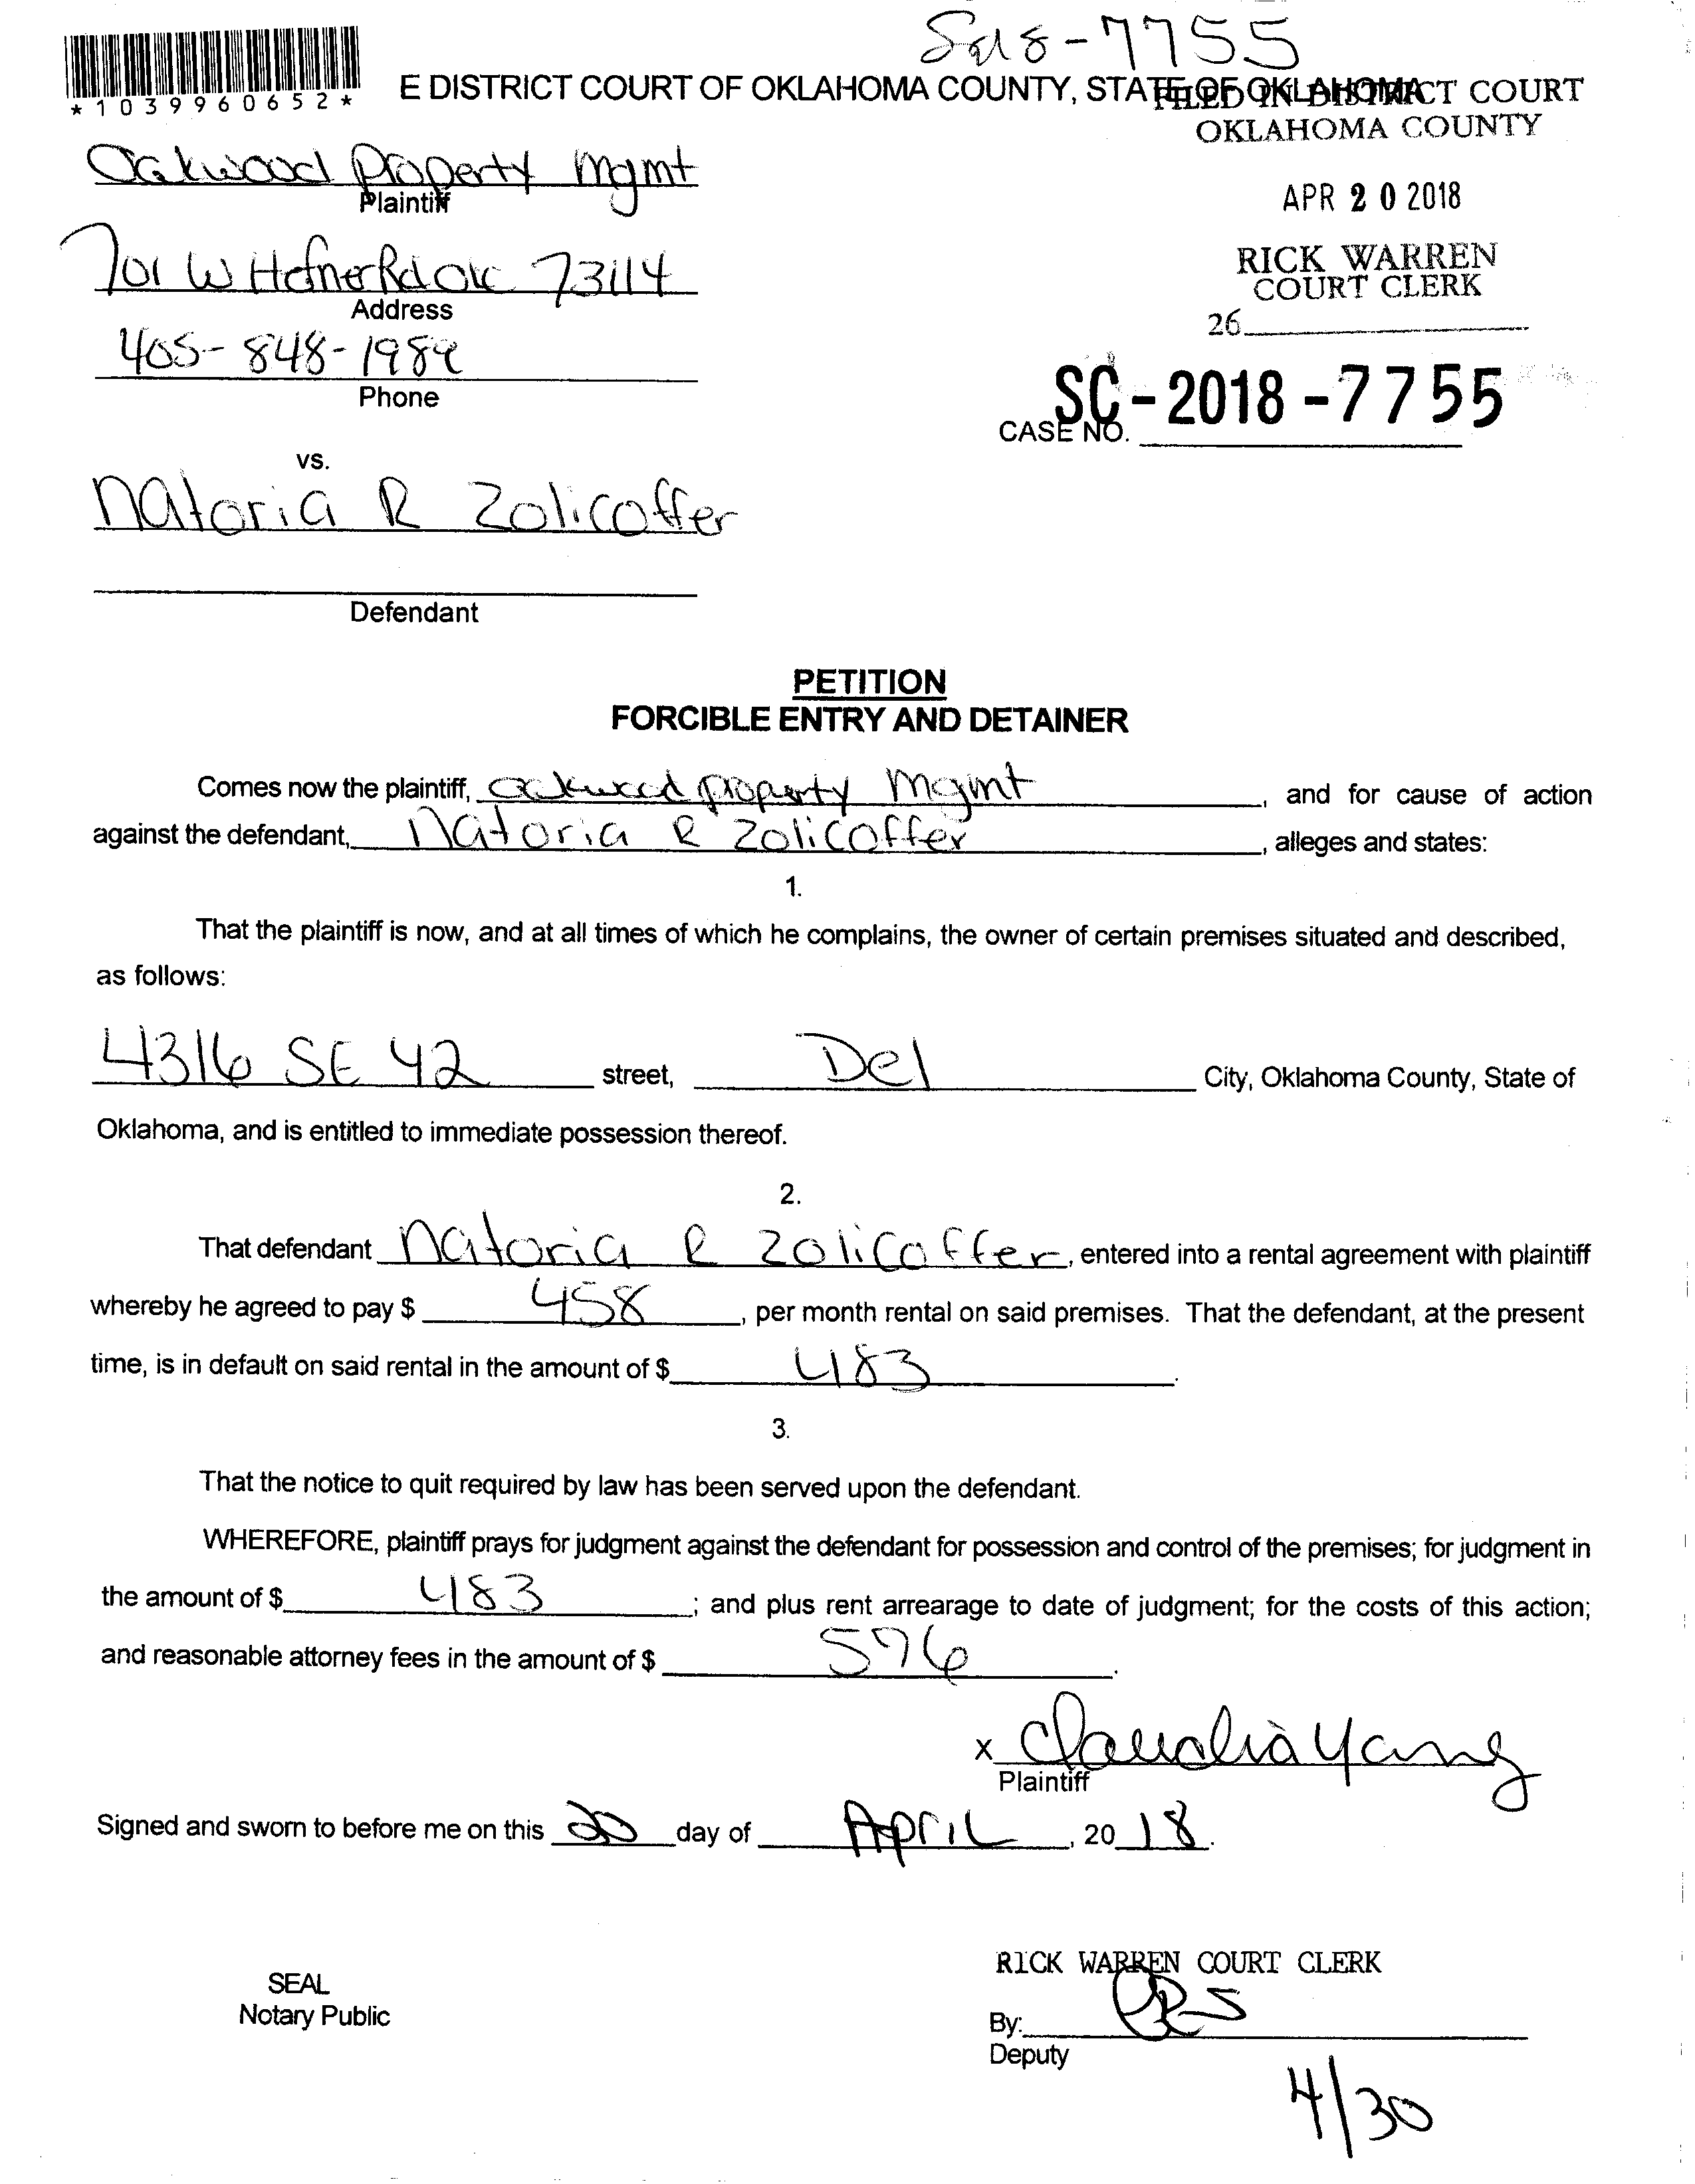 S218-7755
*1039960652*
E DISTRICT COURT OF OKLAHOMA COUNTY, STATE OF OKLAHOMA
FILED IN DISTRICT COURT
OKLAHOMA COUNTY
Oakwood Property Mgmt
Plaintiff
APR 20 2018
701 W Hefner Rd OKC 73114
Address
RICK WARREN
COURT CLERK
405-848-1989
Phone
26
SC-2018-7755
CASE NO.
vs.
Natoria R Zolicoffer
Defendant
PETITION
FORCIBLE ENTRY AND DETAINER
Comes now the plaintiff, Oakwood property Mgmt, and for cause of action
against the defendant, Natoria R Zolicoffer, alleges and states:
1.
That the plaintiff is now, and at all times of which he complains, the owner of certain premises situated and described,
as follows:
4316 SE 42 street, Del City, Oklahoma County, State of
Oklahoma, and is entitled to immediate possession thereof.
2.
That defendant Natoria R Zolicoffer, entered into a rental agreement with plaintiff
whereby he agreed to pay $ 458, per month rental on said premises. That the defendant, at the present
time, is in default on said rental in the amount of $ 483.
3.
That the notice to quit required by law has been served upon the defendant.
WHEREFORE, plaintiff prays for judgment against the defendant for possession and control of the premises; for judgment in
the amount of $ 483; and plus rent arrearage to date of judgment; for the costs of this action;
and reasonable attorney fees in the amount of $ 596.
x Claudia Yang
Plaintiff
Signed and sworn to before me on this 20 day of April, 2018.
RICK WARREN COURT CLERK
SEAL
Notary Public
By:
Deputy
4/30